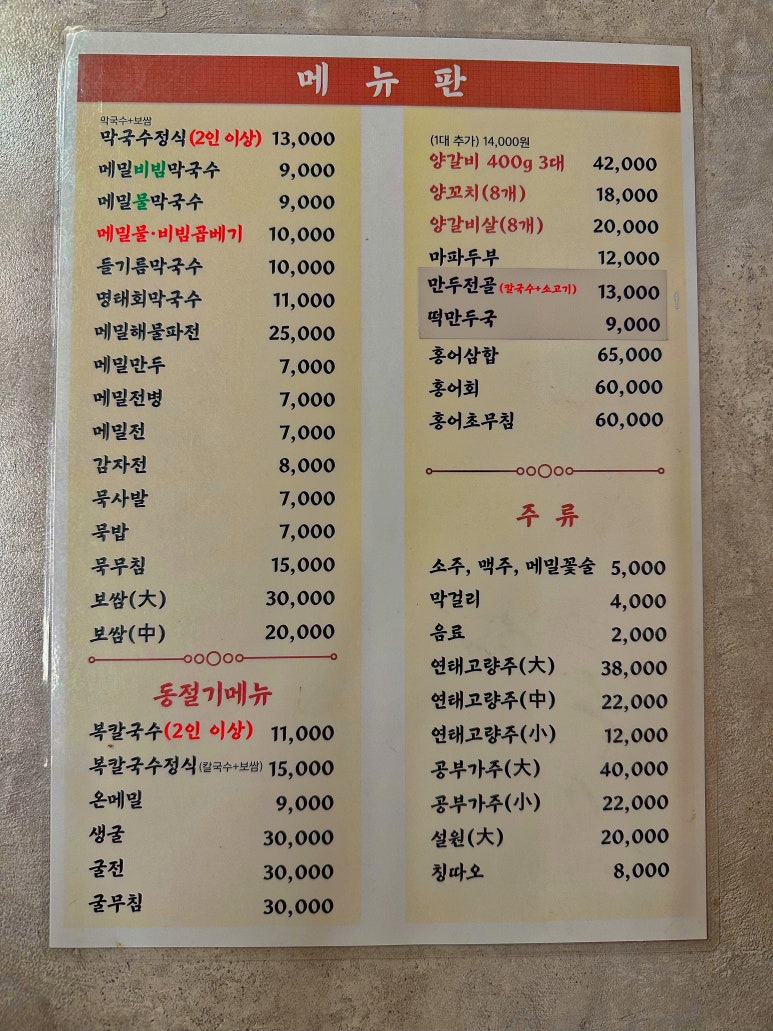 메 뉴 판
막국수+보쌈
막국수정식(2인 이상) 13,000
메밀비빔막국수 9,000
메밀물막국수 9,000
메밀물·비빔곱베기 10,000
들기름막국수 10,000
명태회막국수 11,000
메밀해물파전 25,000
메밀만두 7,000
메밀전병 7,000
메밀전 7,000
감자전 8,000
묵사발 7,000
묵밥 7,000
묵무침 15,000
보쌈(大) 30,000
보쌈(中) 20,000
동절기메뉴
복칼국수(2인 이상) 11,000
복칼국수정식(칼국수+보쌈) 15,000
온메밀 9,000
생굴 30,000
굴전 30,000
굴무침 30,000
(1대 추가) 14,000원
양갈비 400g 3대 42,000
양꼬치(8개) 18,000
양갈비살(8개) 20,000
마파두부 12,000
만두전골(칼국수+소고기) 13,000
떡만두국 9,000
홍어삼합 65,000
홍어회 60,000
홍어초무침 60,000
주 류
소주, 맥주, 메밀꽃술 5,000
막걸리 4,000
음료 2,000
연태고량주(大) 38,000
연태고량주(中) 22,000
연태고량주(小) 12,000
공부가주(大) 40,000
공부가주(小) 22,000
설원(大) 20,000
칭따오 8,000